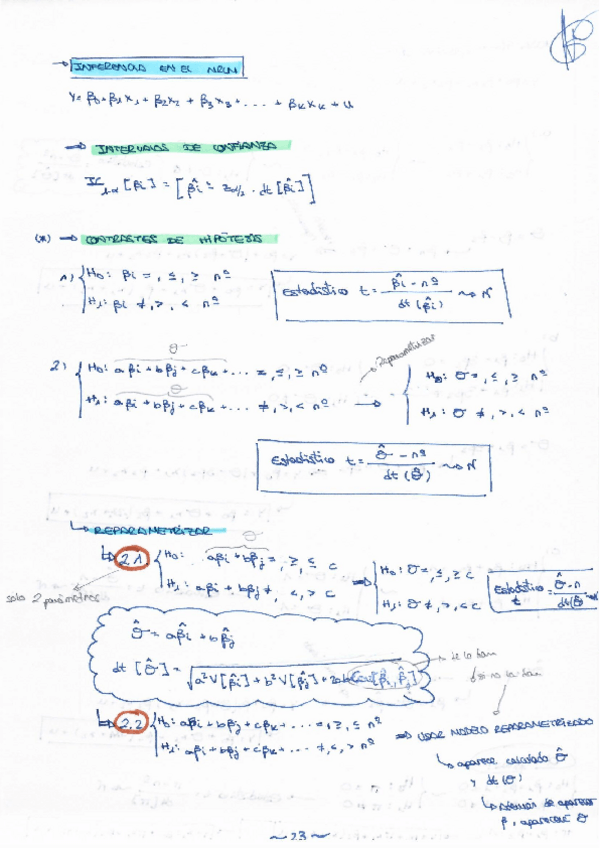 → INFERENCIA EN EL MRLM
Y = β0 + β1X1 + β2X2 + β3X3 + .... + βKXK + U
⇒ INTERVALOS DE CONFIANZA
IC1-α [βi] = [β̂i ± zα/2 · dt [β̂i]]
(*) ⇒ CONTRASTES DE HIPÓTESIS
1) { H0: βi =, ≤, ≥ nº
H1: βi ≠, >, < nº
Estadístico t = β̂i - nº / dt (β̂i) ~> N
2) { H0: aβi + bβj + cβk + ... =, ≤, ≥ nº
H1: aβi + bβj + cβk + ... ≠, >, < nº →
Reparametrizar
{ H0: θ =, ≤, ≥ nº
H1: θ ≠, >, < nº
Estadístico t = θ̂ - nº / dt (θ̂) ~> N
↳ REPARAMETRIZAR
θ
↳ 2.1 { H0: aβi + bβj =, ≥, ≤ c
H1: aβi + bβj ≠, <, > c
⇒ { H0: θ =, ≤, ≥ c
H1: θ ≠, >, < c
Estadístico t = θ̂ - n / dt(θ̂) ~> N
solo 2 parámetros
θ̂ = aβ̂i + bβ̂j
dt [θ̂] = √a²V[β̂i] + b²V[β̂j] + 2ab Cov[β̂i, β̂j]
→ de lo dan
si no la dan
⇒ 2.2 { H0: aβi + bβj + cβk + ... =, ≥, ≤ nº
H1: aβi + bβj + cβk + ... ≠, <, > nº
⇒ USAR MODELO REPARAMETRIZADO
↳ aparece calculado θ̂
y dt(θ̂)
↳ Además de aparecer
β, aparecerá θ
~ 23 ~